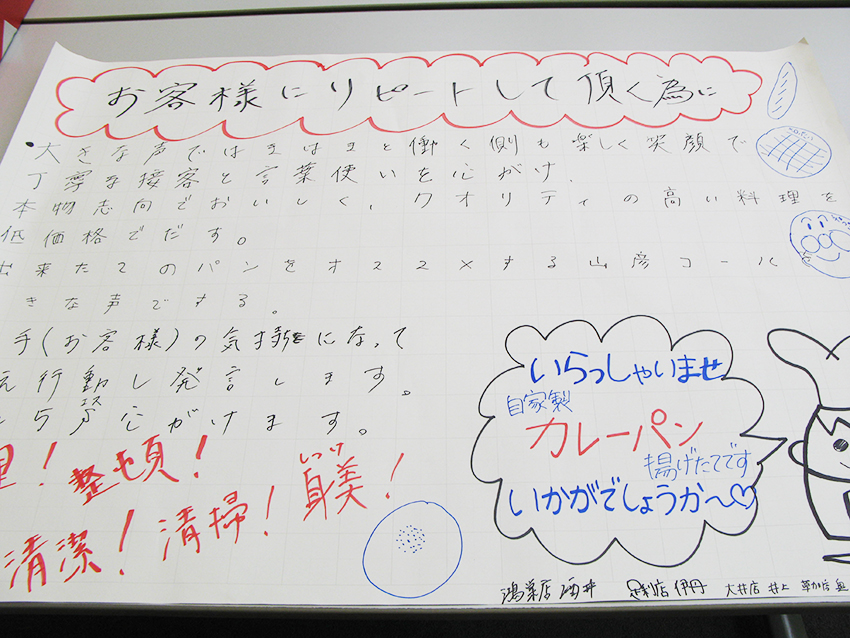 お客様にリピートして頂く為に
・大きな声ではきはきと働く側も楽しく笑顔で
丁寧な接客と言葉使いを心がけ、
本物志向でおいしく、クオリティの高い料理を
低価格でだす。
出来たてのパンをオススメする山彦コールを
きな声でする。
手(お客様)の気持になって
え行動し発言します。
5S 心がけます。
理! 整頓! 身美! しつけ
清潔! 清掃!
いらっしゃいませ
自家製
カレーパン
揚げたてです
いかがでしょうか〜♡
鴻巣店 酒井 足利店 伊丹 大井店 井上 草加店